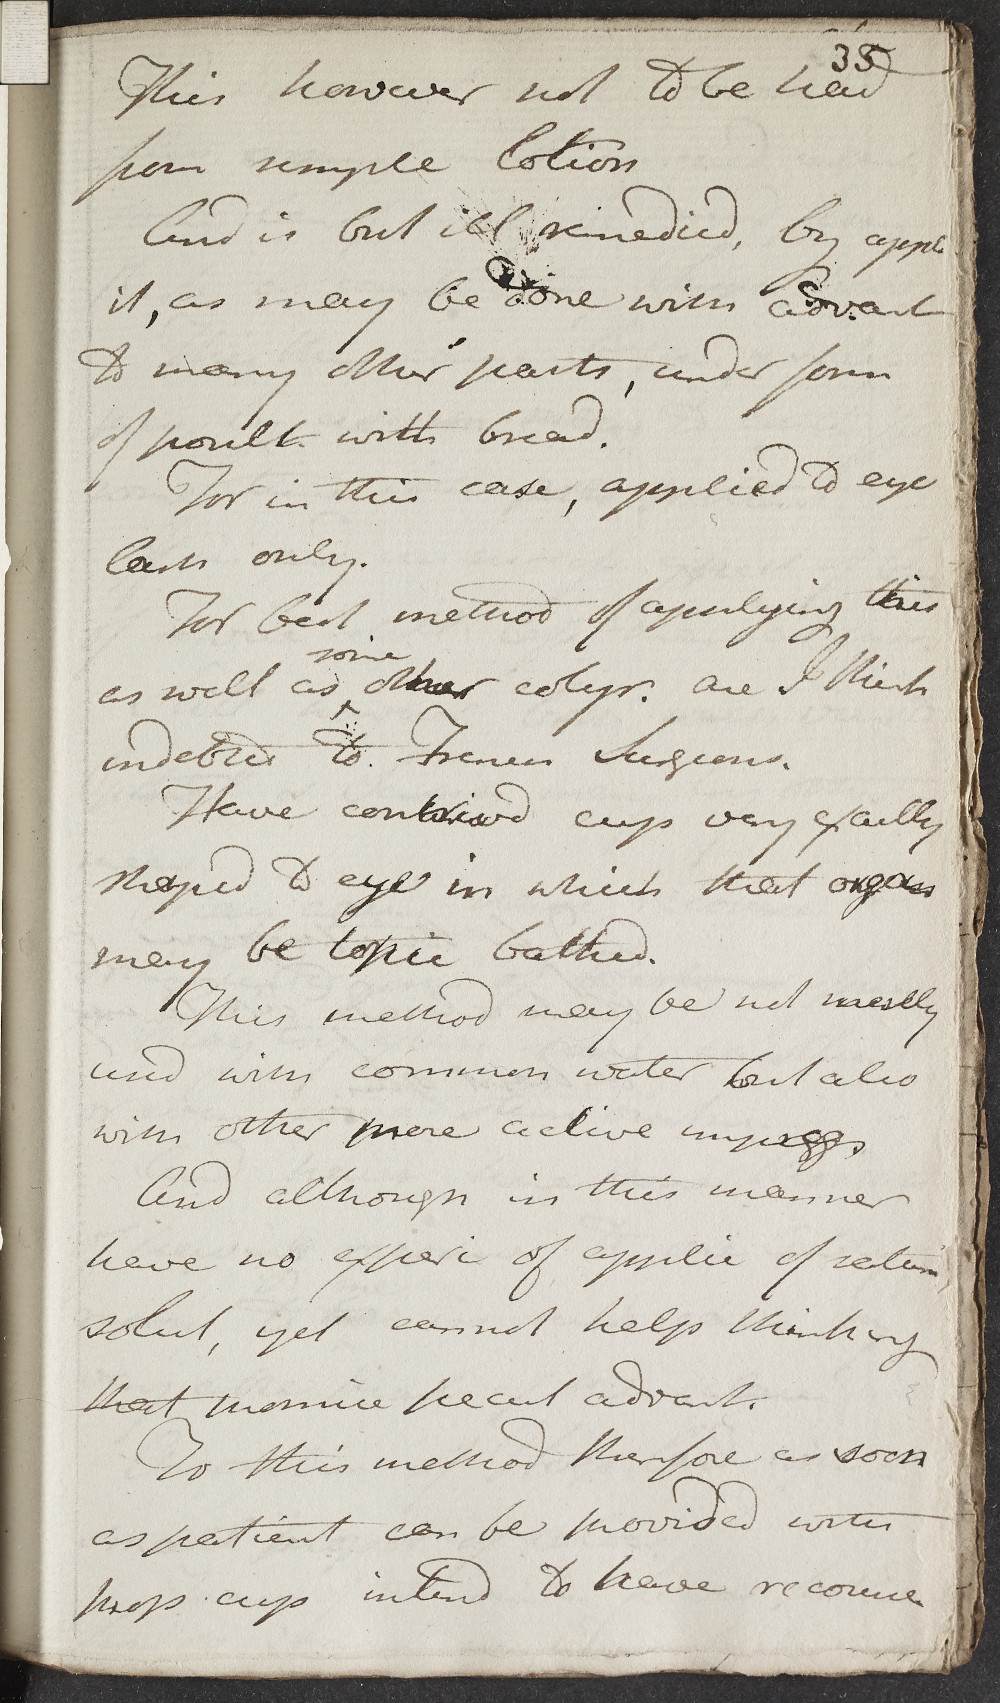 35
This however not to be had
from simple lotion
And is but ill remedied, by appli
it, as may be done with advant
to many other parts, under form
of poult. with bread.
For in this case, applied to eye
lash only.
For best method of applying this
some
as well as other colyr. are I think
indebted to French Surgeons.
Have contrived cups very exactly
shaped to eye in which that organ
may be topic bathed.
This method may be not merely
used with common water but also
with other more active impregs
And although in this manner
have no experi of applic of saturn,
solut, yet cannot help thinking
that promise pecul advant.
To this method therefore as soon
as patient can be provided with
prop. cup intend to have recourse